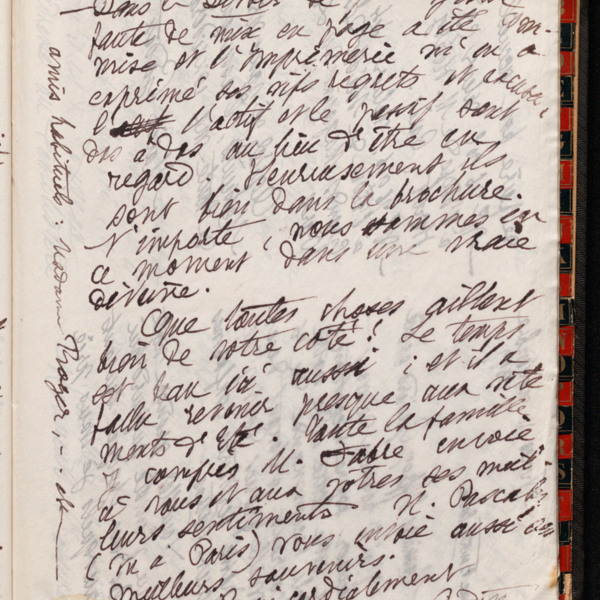 Dans le Devoir de
faute de mise en page a été com-
mise et l'Imprimerie m'en a
exprimé ses vifs regrets et excuses :
l'actif et le passif sont
dos à dos au lieu d'être en
regard. Heureusement ils
sont bien dans la brochure.
N'importe, nous sommes en
ce moment dans une vraie
déveine.
Que toutes choses aillent
bien de votre côté ! Le temps
est beau ici aussi ; et il a
fallu revenir presque aux vête-
ments d'Eté. Toute la famille
y compris M. Fabre envoie
à vous et aux vôtres ses meil-
leurs sentiments. M. Pascal
(m à Paris) vous envoie aussi ses
meilleurs souvenirs.
cordialement
amis habituels : Madame Roger,